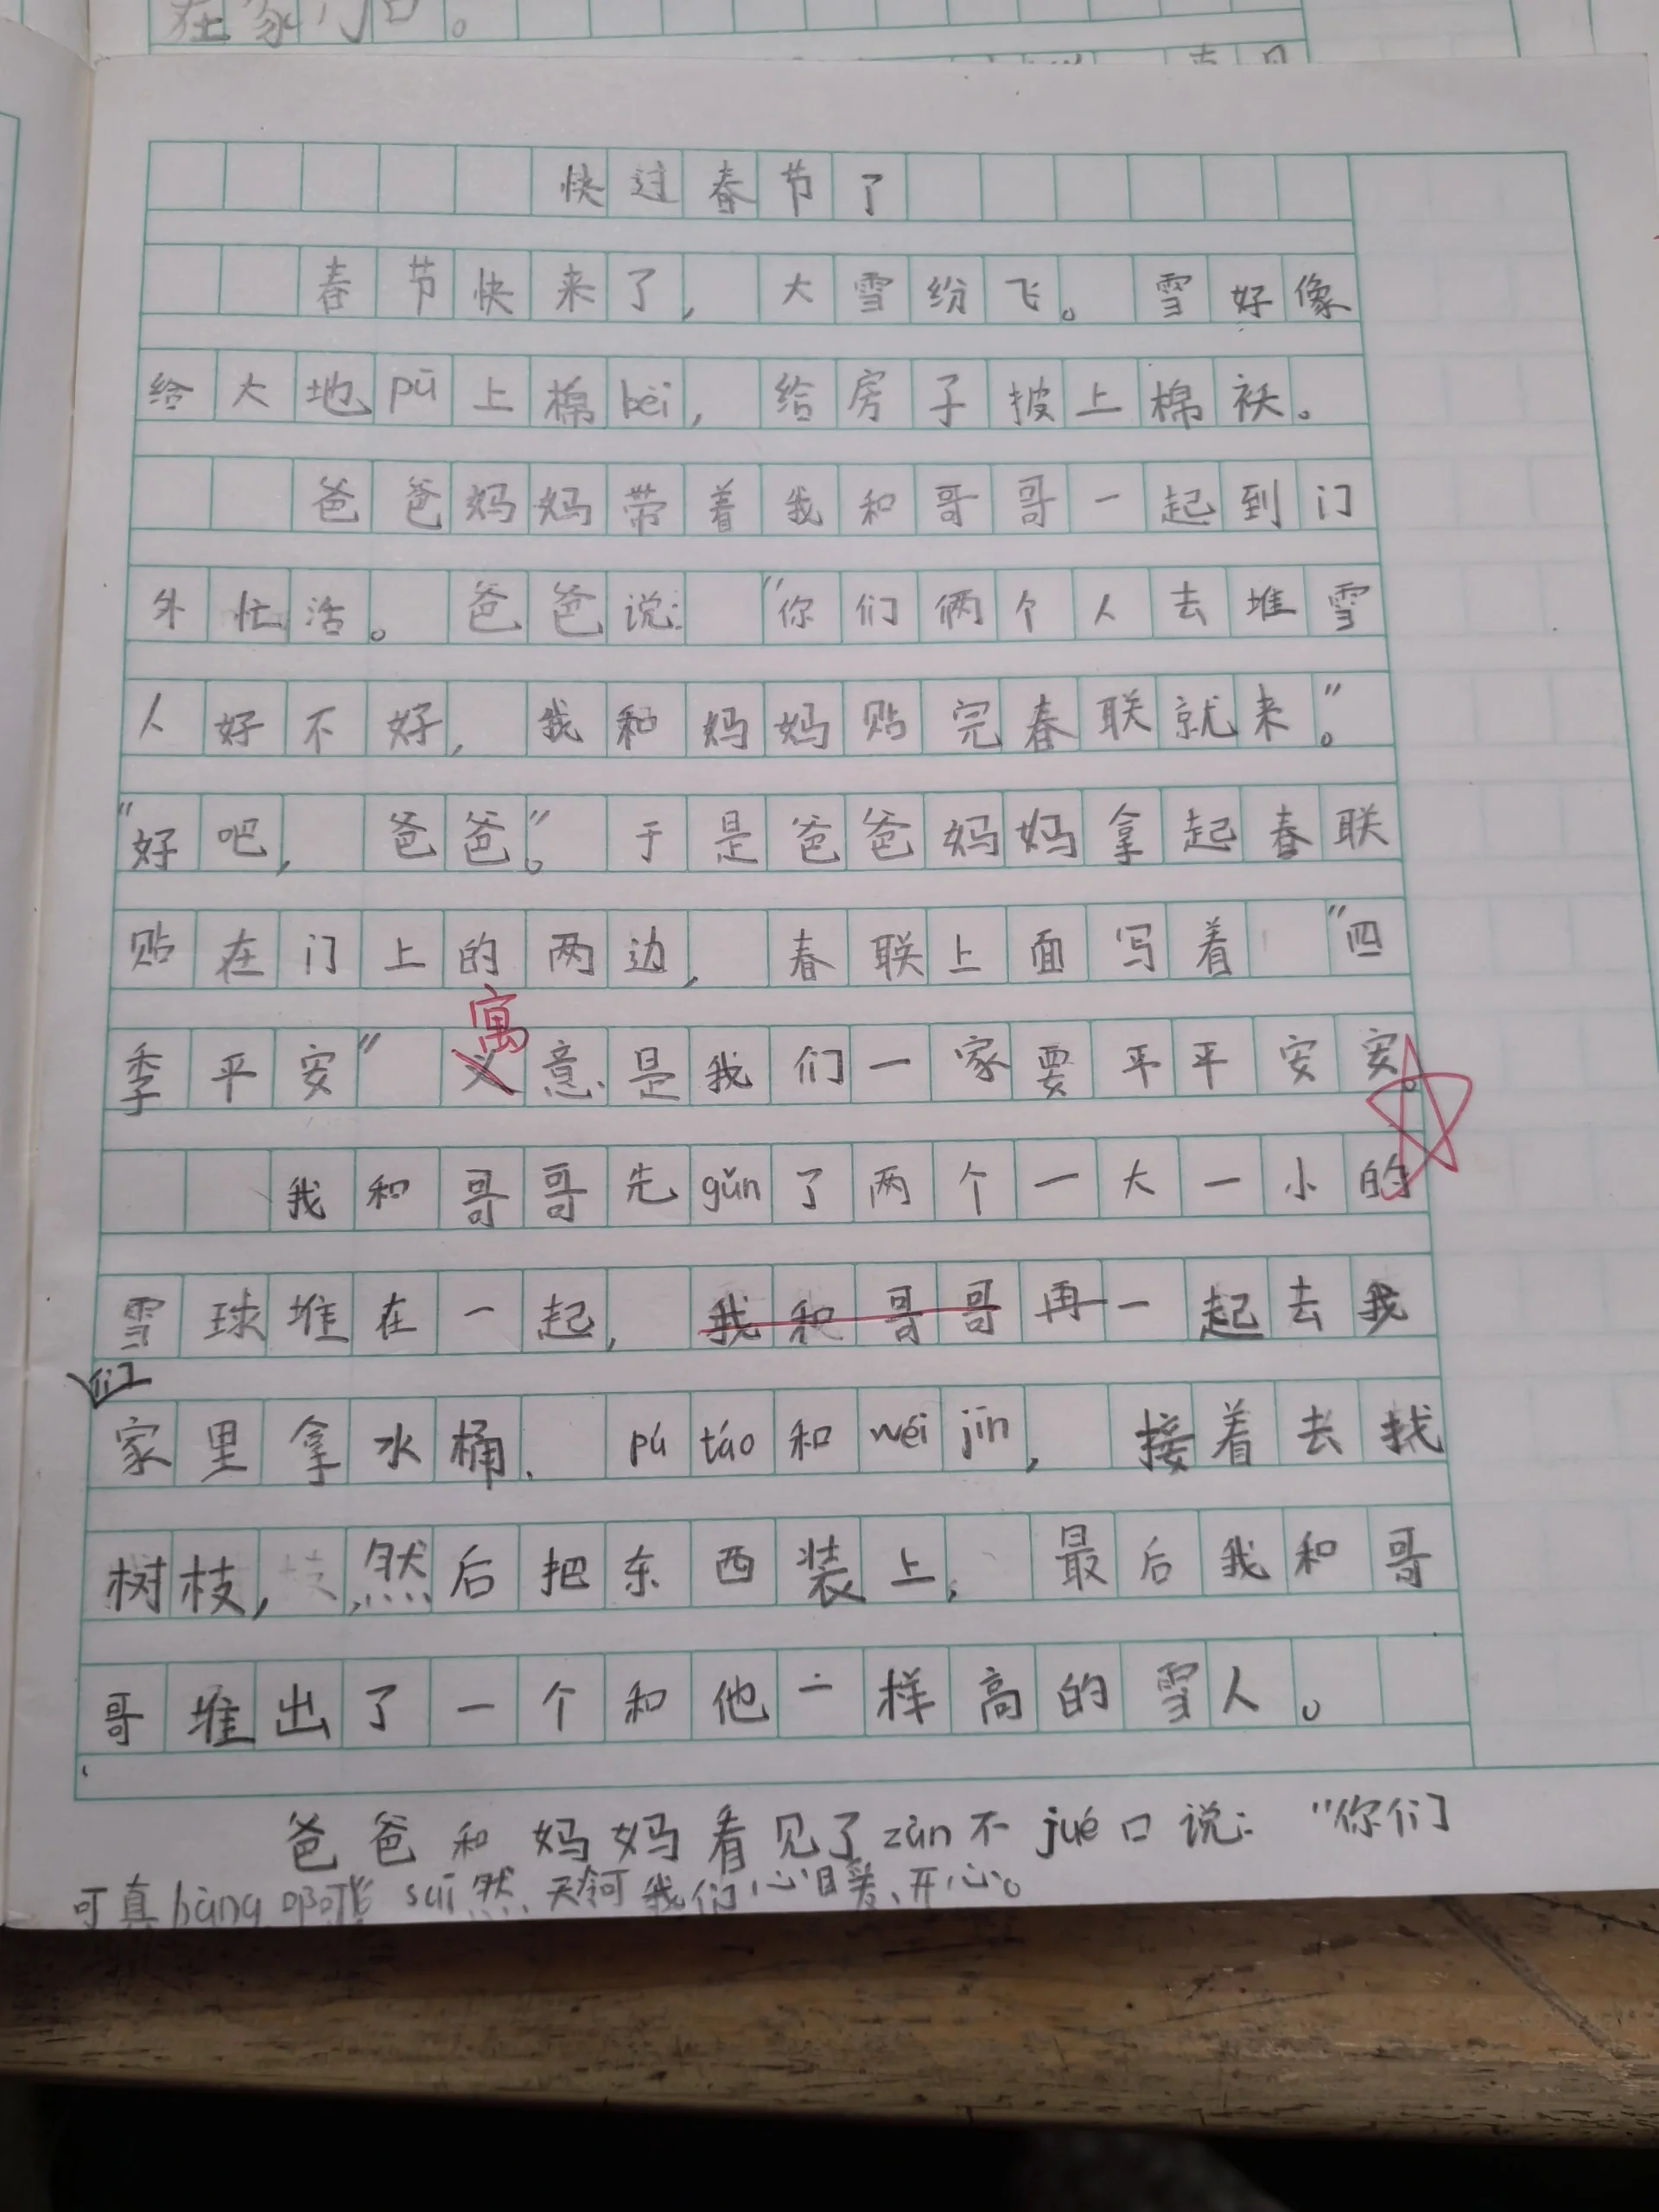 在家门口。
快过春节了
春节快来了，大雪纷飞。雪好像
给大地pū上棉bèi，给房子披上棉袄。
爸爸妈妈带着我和哥哥一起到门
外忙活。爸爸说：“你们俩个人去堆雪
人好不好，我和妈妈贴完春联就来。”
“好吧，爸爸。”于是爸爸妈妈拿起春联
贴在门上的两边，春联上面写着“四
寓
季平安”义意是我们一家要平平安安。
我和哥哥先gǔn了两个一大一小的
雪球堆在一起，我和哥哥再一起去我
们
家里拿水桶、pú táo和wéi jīn，接着去找
树枝，然后把东西装上，最后我和哥
哥堆出了一个和他一样高的雪人。
爸爸和妈妈看见了zàn不jué口说：“你们
可真bàng啊 suī然 我们心里暖、开心。